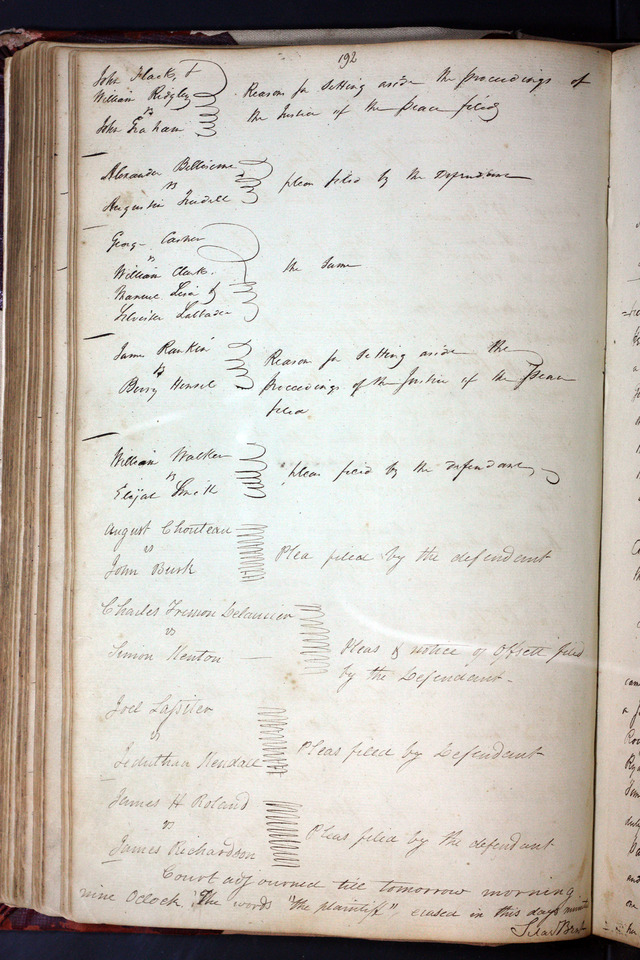 192
John Flack, &
William Ridgley
vs
John Graham
Reasons for Setting aside the proceedings of
the Justice of the Peace filed
Alexander Bellissime
vs
Augustin
pleas filed by the Defendant
George
vs
William Clark,
Manuel Lisa &
Silvester Labbadie
the Same
James Rankin
vs
Berry Hensel
Reasons for Setting aside the
proceedings of the Justice of the Peace
filed
William Walker
vs
Elijah Smith
pleas filed by the defendant
August Chouteau
vs
John Burk
Plea filed by the defendant
Charles Fremon Delaurier
vs
Simon Kenton
Pleas & notice of Offsett filed
by the Defendant
Joel Lassiter
vs
Jeduthan Kendall
Pleas filed by Defendant
James H Roland
vs
James Richardson
Pleas filed by the defendant
Court adjourned till tomorrow morning
nine Oclock The words "the plaintiff", erased in this days minutes
Silas Bent